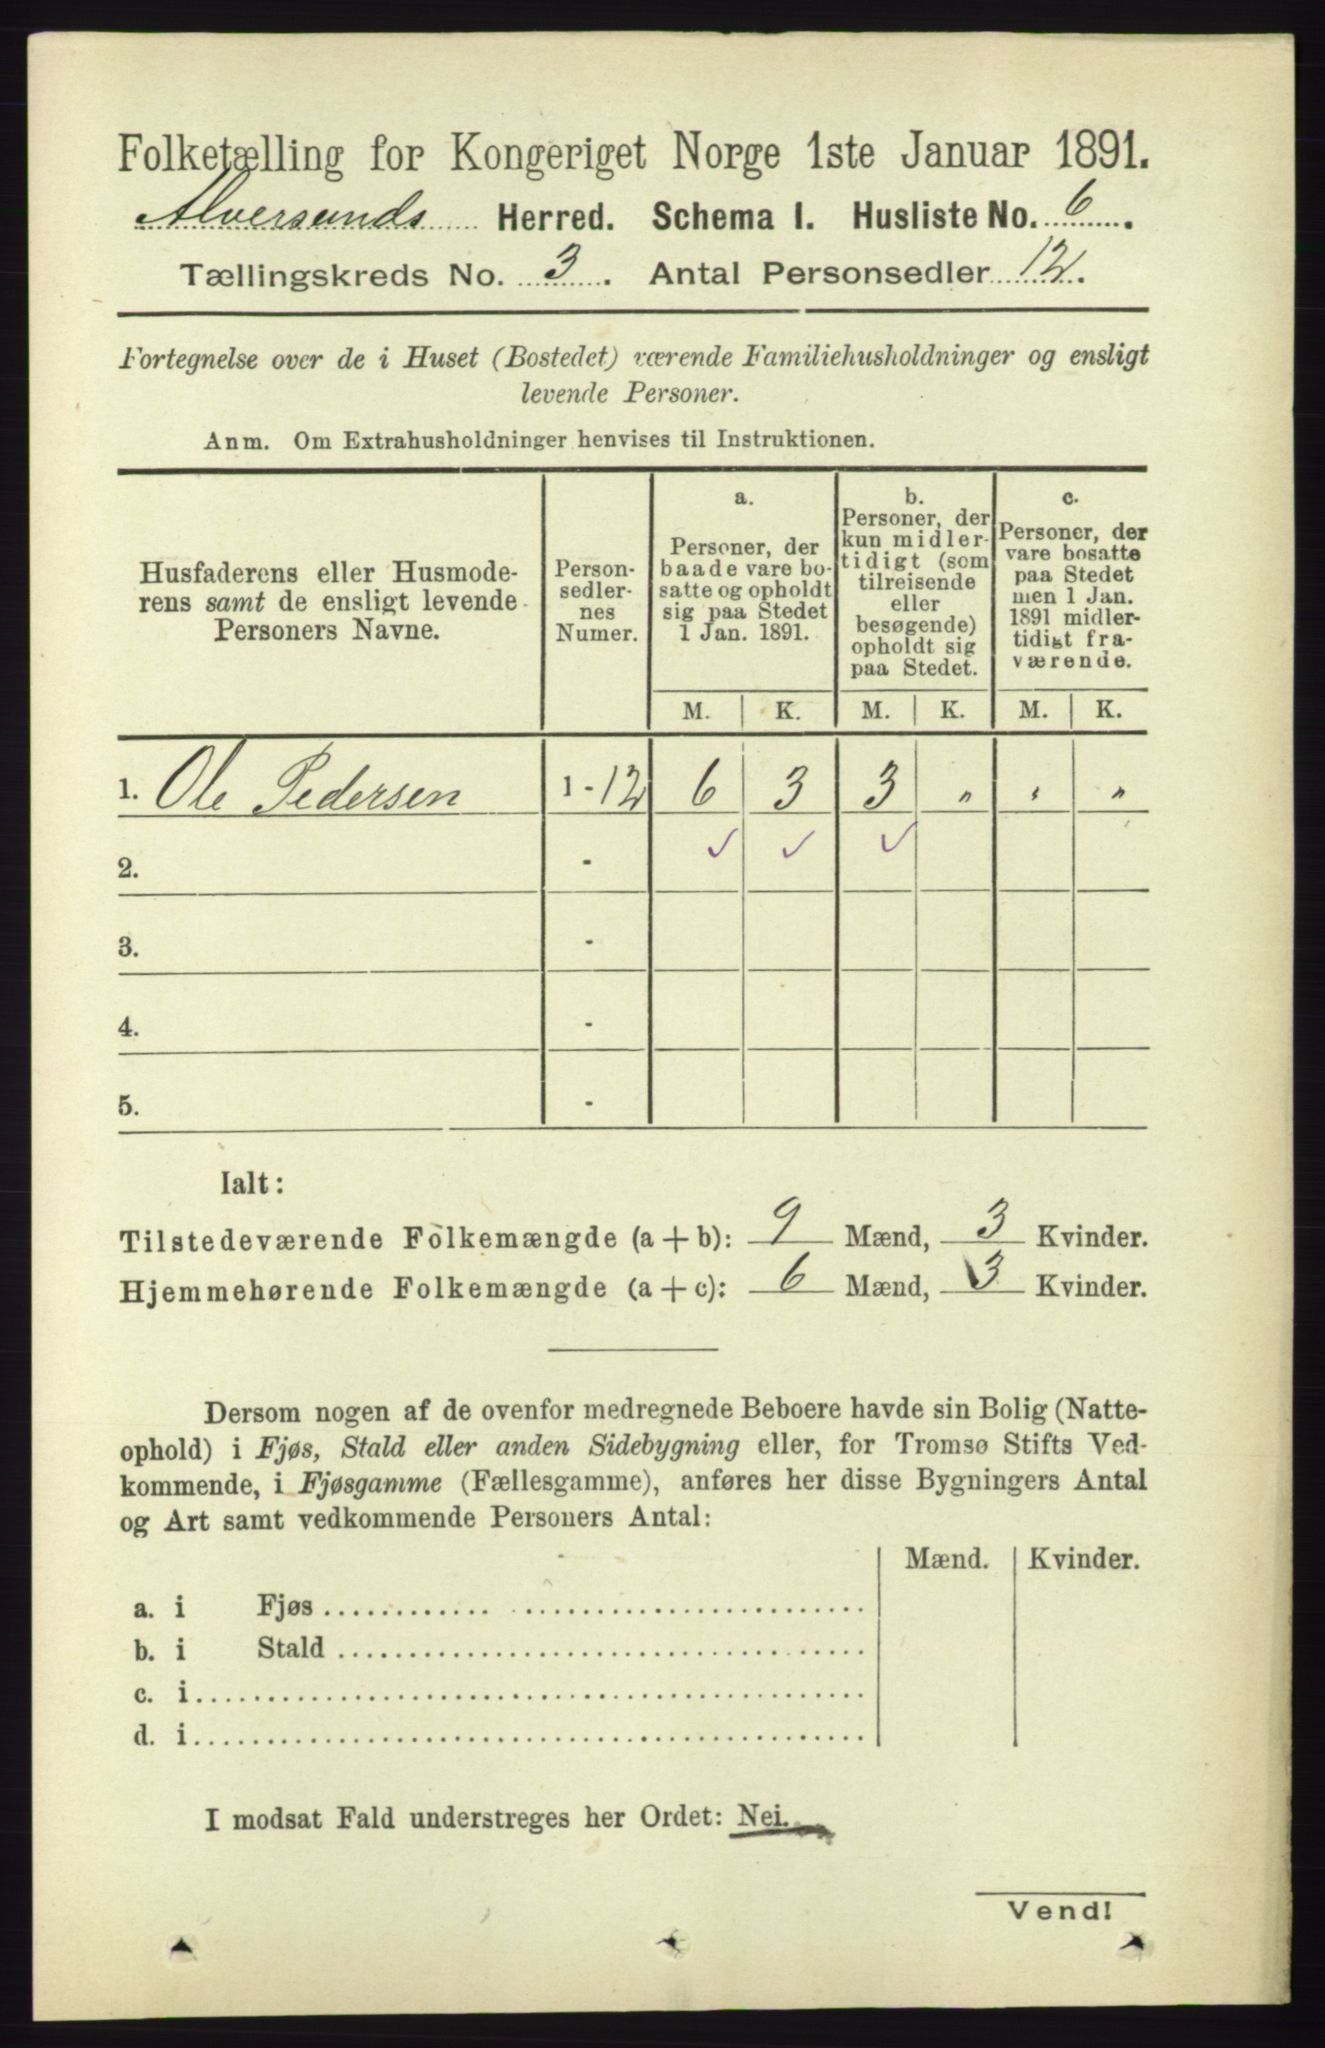 Folketælling for Kongeriget Norge 1ste Januar 1891.
Alversunds Herred. Schema I. Husliste No. 6.
Tællingskreds No. 3. Antal Personsedler 12.
Fortegnelse over de i Huset (Bostedet) værende Familiehusholdninger og ensligt
levende Personer.
Anm. Om Extrahusholdninger henvises til Instruktionen.
Husfaderens eller Husmode-
rens samt de ensligt levende
Personers Navne.
Person-
sedler-
nes
Numer.
a.
Personer, der
baade vare bo-
satte og opholdt
sig paa Stedet
1 Jan. 1891.
b.
Personer, der
kun midler-
tidigt (som
tilreisende
eller
besøgende)
opholdt sig
paa Stedet.
c.
Personer, der
vare bosatte
paa Stedet
men 1 Jan.
1891 midler-
tidigt fra-
værende.
M. K. M. K. M. K.
1. Ole Pedersen 1 - 12 6 3 3 " " "
2. - ✓ ✓ ✓
3. -
4. -
5. -
Ialt:
Tilstedeværende Folkemængde (a + b): 9 Mænd, 3 Kvinder.
Hjemmehørende Folkemængde (a + c): 6 Mænd, 3 Kvinder.
Dersom nogen af de ovenfor medregnede Beboere havde sin Bolig (Natte-
ophold) i Fjøs, Stald eller anden Sidebygning eller, for Tromsø Stifts Ved-
kommende, i Fjøsgamme (Fællesgamme), anføres her disse Bygningers Antal
og Art samt vedkommende Personers Antal:
Mænd. Kvinder.
a. i Fjøs
b. i Stald
c. i
d. i
I modsat Fald understreges her Ordet: Nei.
Vend!